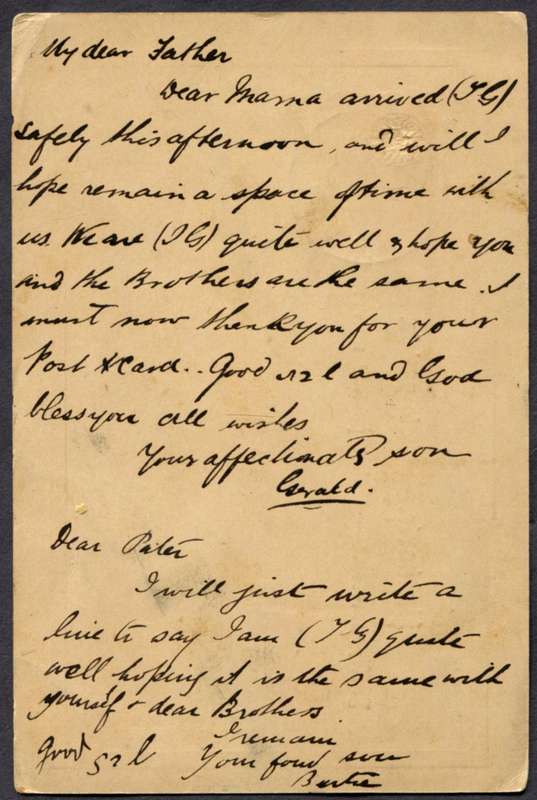 My dear Father
Dear Mama arrived (T G)
safely this afternoon, and will I
hope remain a space of time with
us. We are (T G) quite well & hope you
and the Brothers are the same. I
must now thank you for your
Post Card.. Good and God
bless you all wishes
Your affectionate son
Gerald.
Dear Pater
I will just write a
line to say I am (T G) quite
well hoping it is the same with
yourself & dear Brothers
I remain
Good
Your fond son
Bertie